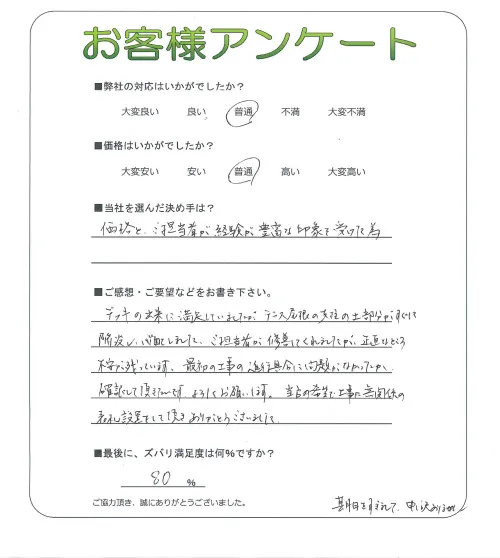 お客様アンケート
■弊社の対応はいかがでしたか?
大変良い 良い 普通 不満 大変不満
■価格はいかがでしたか?
大変安い 安い 普通 高い 大変高い
■当社を選んだ決め手は?
価格と、ご担当者が経験が豊富な印象を受けた為
■ご感想・ご要望などをお書き下さい。
デッキの出来に満足していましたが テラス屋根の支柱の土部分がすぐに
陥没し心配しました、ご担当者が修善してくれましたが、正直なところ
不安が残っています、最初の工事の進行具合に問題がなかったか
確認して頂きたいです よろしくお願いします。当方の希望で工事に無関係の
表札設置をして頂きありがとうございました
■最後に、ズバリ満足度は何%ですか?
80 %
ご協力頂き、誠にありがとうございました。
期日をすぎて、申し訳ありません